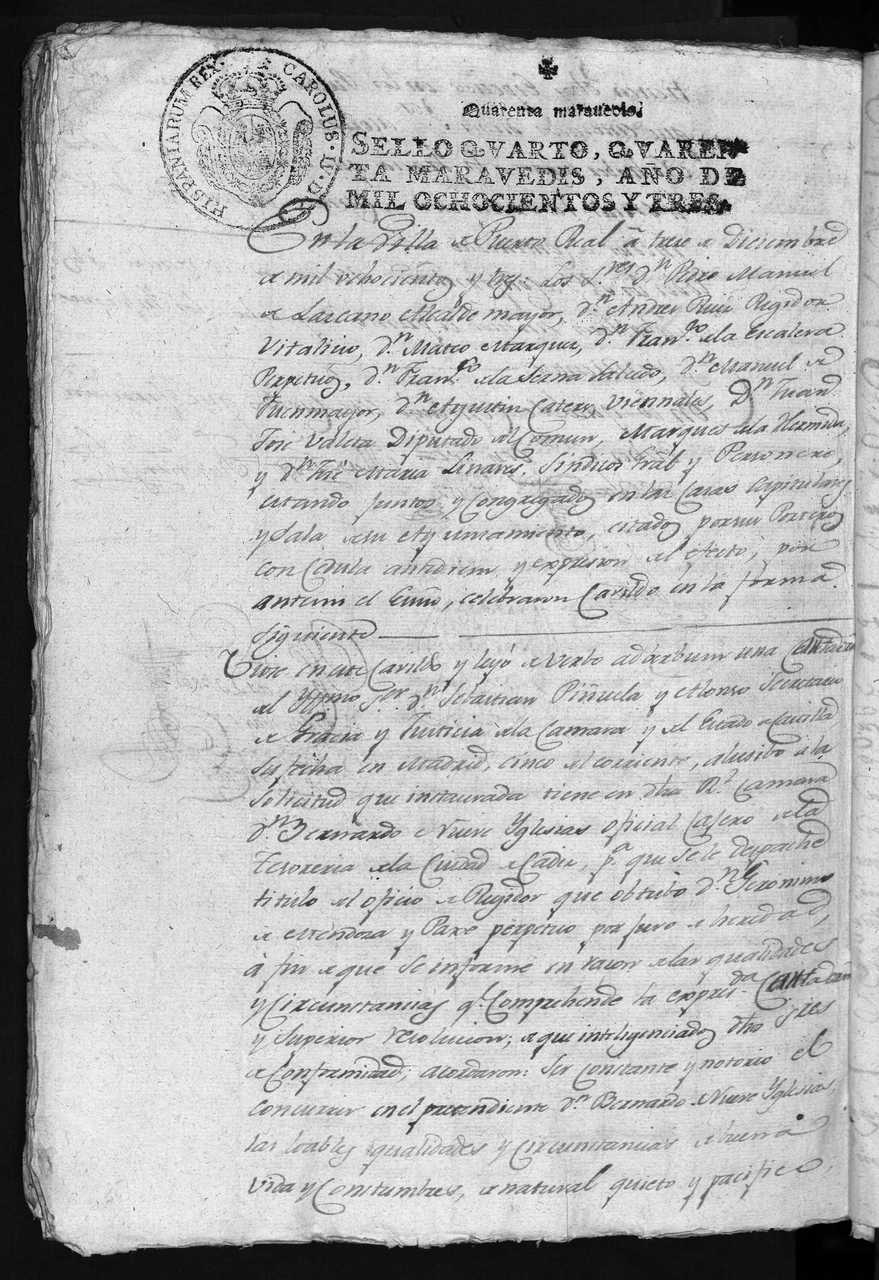 HISPANIARUM REX. CAROLUS. IV. D. G.
Quarenta maravedis.
SELLO QVARTO, QVAREN-
TA MARAVEDIS, AÑO DE
MIL OCHOCIENTOS Y TRES.
En la Villa de Puerto Real á trece de Diciembre
de mil ochocientos y tres: Los S.res d.n Pedro Manuel
de Lazcano Alcalde mayor, d.n Andres Ruiz Regidor
Vitalicio, d.n Mateo Marquez, d.n Fran.co de la Escalera
Perpetuos, d.n Fran.co de la Salcedo, d.n Manuel de
Fuenmayor, d.n Agustin Viennales, D.n Juan
José Valeta Diputado del Comun, Marques de la Hermida,
y d.n José Maria Linares, Sindicos Gral y Personero,
estando juntos y Congregados en las Casas Capitulares
y Sala de su Ayuntamiento, citados por sus Porteros
con Cedula antediem y expresion del efecto, por
antemi el Essno, celebraron Cavildo en la forma
siguiente
Viose en este Cavildo y leyó de Verbo ad Verbum una Carta
del Yllmo Sor. d.n Sebastian Piñuela y Alonso Secretario
de Gracia y Justicia de la Camara y del Estado de Castilla
su fecha en Madrid, cinco del corriente, alusibo á la
solicitud que instaurada tiene en dha R.l Camara
d.n Bernardo de Nueve Yglesias oficial Casero de la
Tesoreria de la Ciudad de Cadiz, p.a que se le despache
titulo del oficio de Regidor que obtubo d.n Geronimo
de Mendoza y Pare perpetuo por juro de heredad,
á fin de que se informe en razon de las qualidades
y Circunstancias q.e Comprehende la expres.da Carta
y Superior resolucion; de que inteligenciados dhos Sres
de Conformidad, acordaron: Ser Constante y notorio el
concurrir en el pretendiente d.n Bernardo de Nueve Yglesias
las loables qualidades y Circunstancias de buena
Vida y Constumbres, de natural quieto y pacifico,